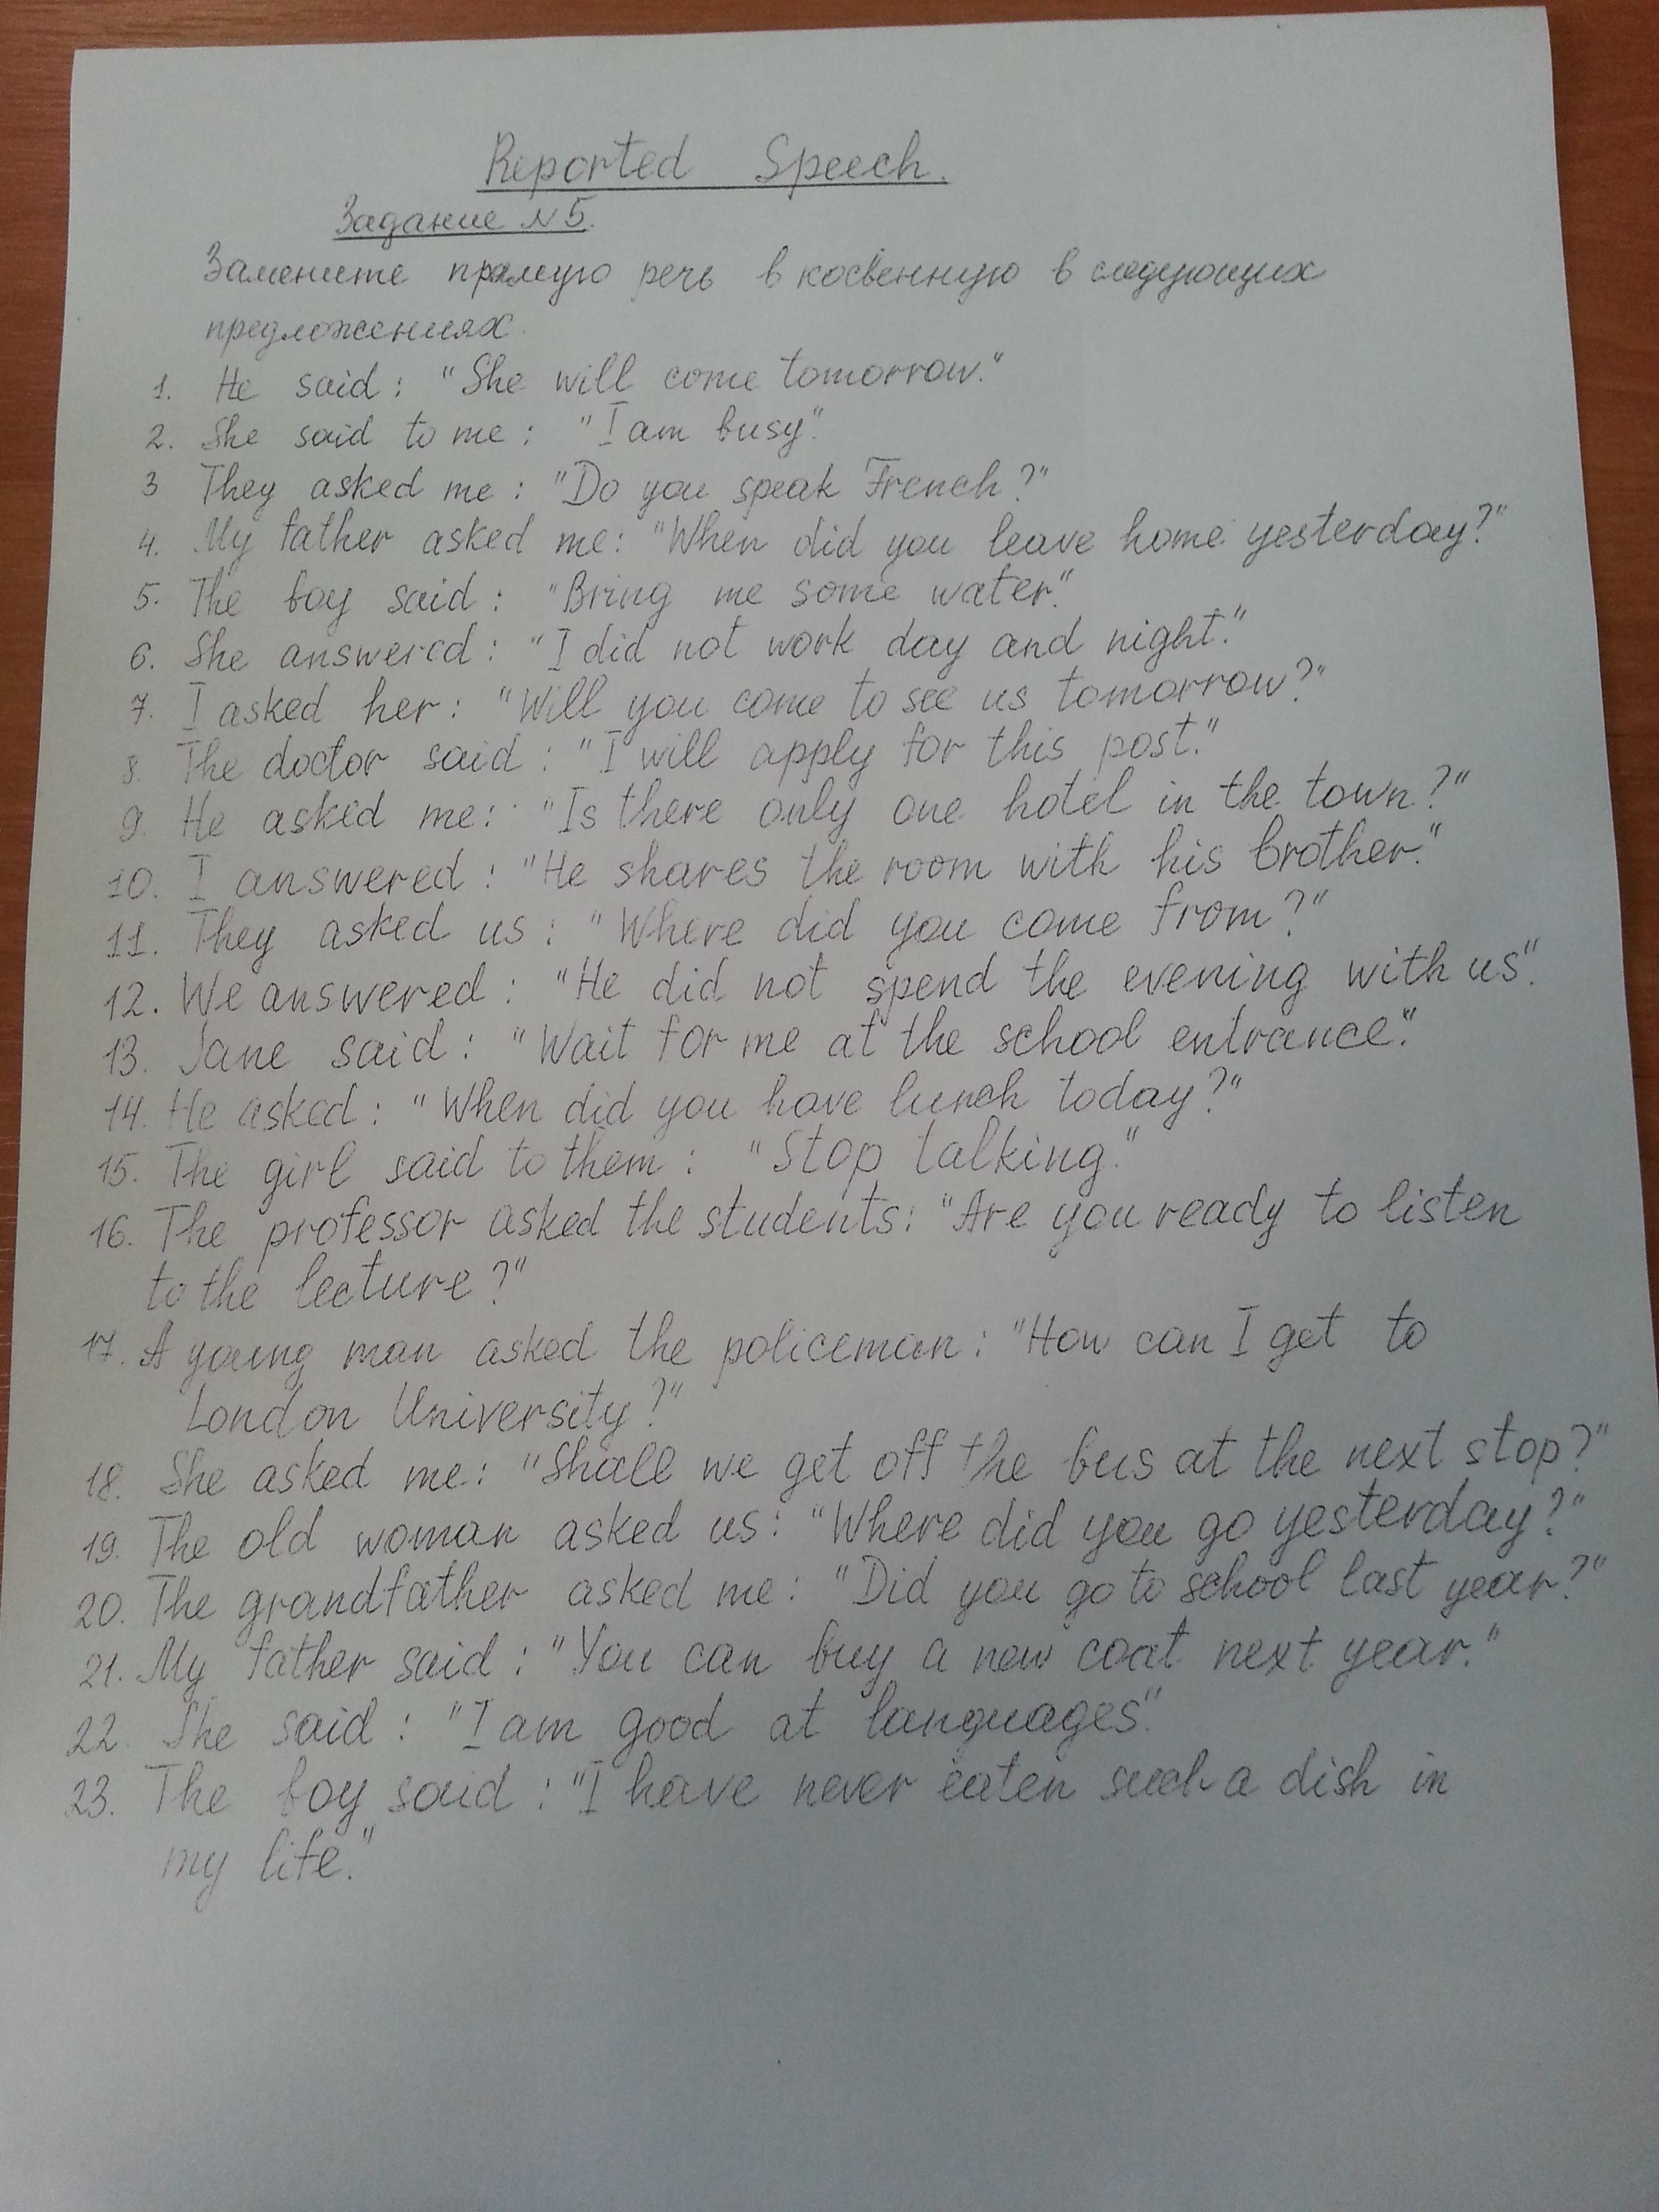 Reported Speech.
Задание №5.
Замените прямую речь в косвенную в следующих
предложениях.
1. He said: "She will come tomorrow."
2. She said to me: "I am busy".
3 They asked me: "Do you speak French?"
4. My father asked me: "When did you leave home yesterday?"
5. The boy said: "Bring me some water."
6. She answered: "I did not work day and night."
7. I asked her: "Will you come to see us tomorrow?"
8. The doctor said: "I will apply for this post."
9. He asked me: "Is there only one hotel in the town?"
10. I answered: "He shares the room with his brother."
11. They asked us: "Where did you come from?"
12. We answered: "He did not spend the evening with us".
13. Jane said: "Wait for me at the school entrance."
14. He asked: "When did you have lunch today?"
15. The girl said to them: "Stop talking."
16. The professor asked the students: "Are you ready to listen
to the lecture?"
17. A young man asked the policeman: "How can I get to
London University?"
18. She asked me: "Shall we get off the bus at the next stop?"
19. The old woman asked us: "Where did you go yesterday?"
20. The grandfather asked me: "Did you go to school last year?"
21. My father said: "You can buy a new coat next year."
22. She said: "I am good at languages".
23. The boy said: "I have never eaten such a dish in
my life."